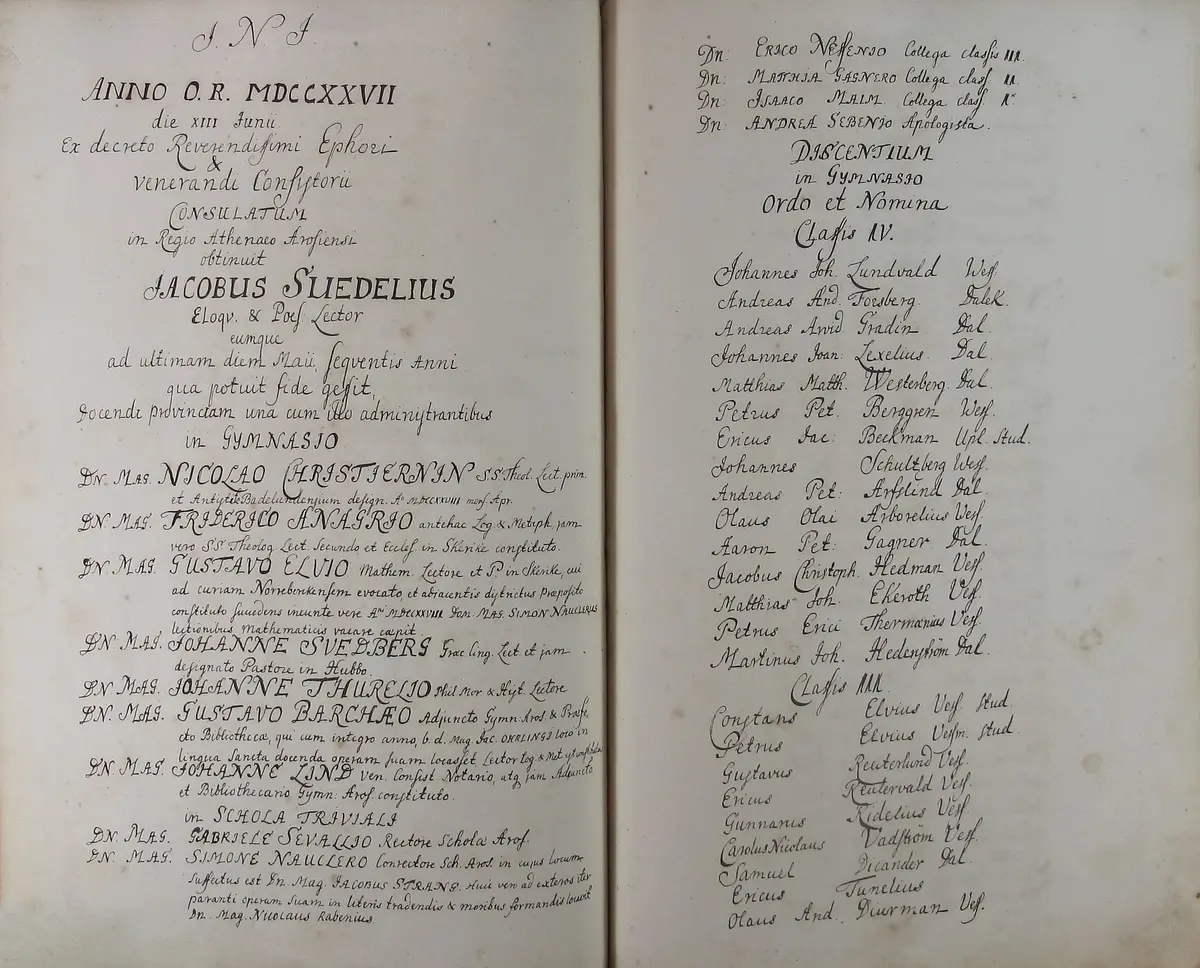 J. N. J.
ANNO O. R. MDCCXXVII
die XIII Junii
Ex decreto Reverendissimi Ephori
&
venerandi Consistorii
CONSULATUM
in Regio Athenaeo Arosiensi
obtinuit
JACOBUS SUEDELIUS
Eloqv. & Poes. Lector
eumque
ad ultimam diem Maii, seqventis Anni
qua potuit fide gessit,
Docendi provinciam una cum illo administrantibus
in GYMNASIO
DN. MAG. NICOLAO CHRISTIERNIN S.S. Theol. Lect. prim.
et Antistite Badelundensium design. Ao MDCCXXVIII mens. Apr.
DN. MAG. FRIDERICO ANAGRIO antehac Log. & Metaph. jam
vero S.S. Theolog. Lect. secundo et Eccles. in Skerike constituto.
DN. MAG. GUSTAVO ELVIO Mathem. Lectore et P. in Skerike, cui
ad curiam Norreberkensem evocato, et adjacentis districtus Præposito
constituto succedens ineunte vere Ao MDCCXXVIII Dom. MAG. SIMON NAUCLERUS
lectionibus Mathematicis vacare cæpit.
DN. MAG. JOHANNE SVEDBERG Græc. Ling. Lect. et jam
designato Pastore in Hubbo.
DN. MAG. JOHANNE THURELIO Phil. Mor. & Hist. Lectore
DN. MAG. GUSTAVO BARCHÆO Adjuncto Gymn. Aros. & Præfe,
cto Bibliothecæ, qui cum integro anno, b. d. Mag. Jac. OHRLINGI loco in
lingua sancta docenda operam suam locasset, Lector Log. & Met. est constitutus
DN. MAG. JOHANNE LIND ven. Consist. Notario, atq. jam Adjuncto
et Bibliothecario Gymn: Aros. constituto.
in SCHOLA TRIVIALI
DN. MAG. GABRIELE SEVALLIO Rectore Scholæ Aros.
DN. MAG. SIMONE NAUCLERO Conrectore Sch. Aros. in cujus locum
suffectus est Dn. Mag. JACOBUS STRANG. Huic vero ad exteros iter
paranti operam suam in literis tradendis & moribus formandis locavit
Dn. Mag. Nicolaus Rabenius.
Dn: ERICO NESSENIO Collega classis III.
Dn: MATTHIA GAGNERO Collega class. II.
Dn: ISAACO MALM. Collega class. I.
Dn: ANDREA SEBENIO Apologista.
DISCENTIUM
in GYMNASIO
Ordo et Nomina
Classis IV.
Johannes Joh. Lundvald Wesf.
Andreas And. Forsberg. Dalek.
Andreas Arvid. Gradin Dal.
Johannes Joan: Lexelius. Dal.
Matthias Matth. Westerberg. Dal.
Petrus Pet. Berggren Wesf.
Ericus Jac: Beckman Upl. Stud.
Johannes Schultzberg Wesf.
Andreas Pet: Arfslind Dal.
Olaus Olai Arborelius Wesf.
Aaron Pet: Gagner Dal.
Jacobus Christoph. Hedman Vesf.
Matthias Joh. Ekeroth Vesf.
Petrus Erici Thermænius Vesf.
Martinus Joh. Hedenström Dal.
Classis III.
Constans Elvius Vesf. Stud.
Petrus Elvius Vesm. Stud.
Gustavus Reuterlund Vesf.
Ericus Reutervald Vesf.
Gunnarus Ridelius Vesf.
Carolus Nicolaus Vadström Vesf.
Samuel Dicander Dal.
Ericus Tunelius
Olaus And. Diurman Vesf.